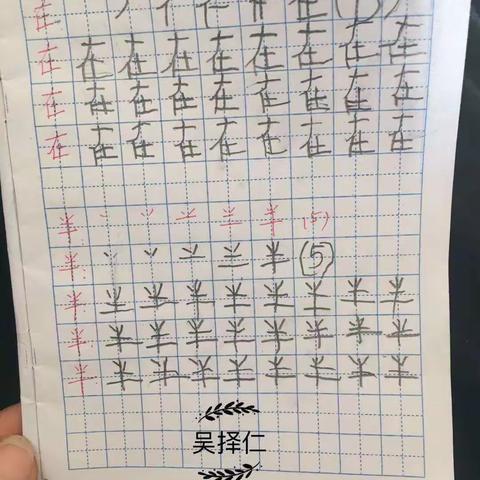 在 在
在 在 在 在 在 在 在 在 在
在 在 在 在 在 在 在 在 在
在 在 在 在 在 在 在 在 在
半 丶 丷 䒑 兰 半 (5)
半 丶 丷 䒑 兰 半 ⑤
半 半 半 半 半 半 半 半 半
半 半 半 半 半 半 半 半 半
半 半 半 半 半 半 半 半 半
吴择仁